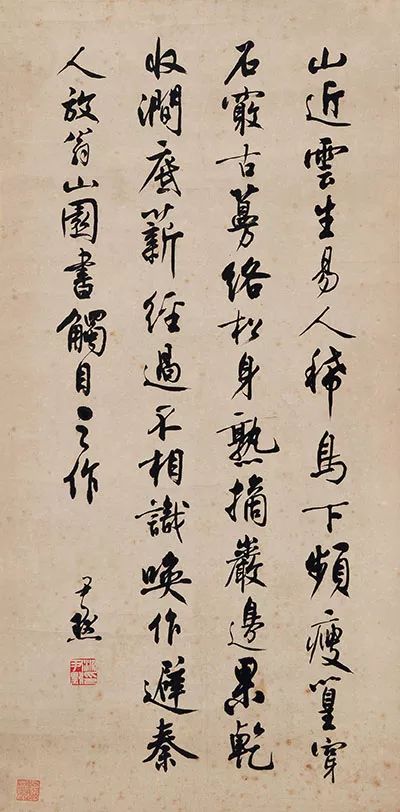 山近雲生易人稀鳥下頻瘦篁穿
石竅古蔓絡松身熟摘巖邊果乾
收澗底薪經過不相識喚作避秦
人放翁山園書觸目之作
尹默